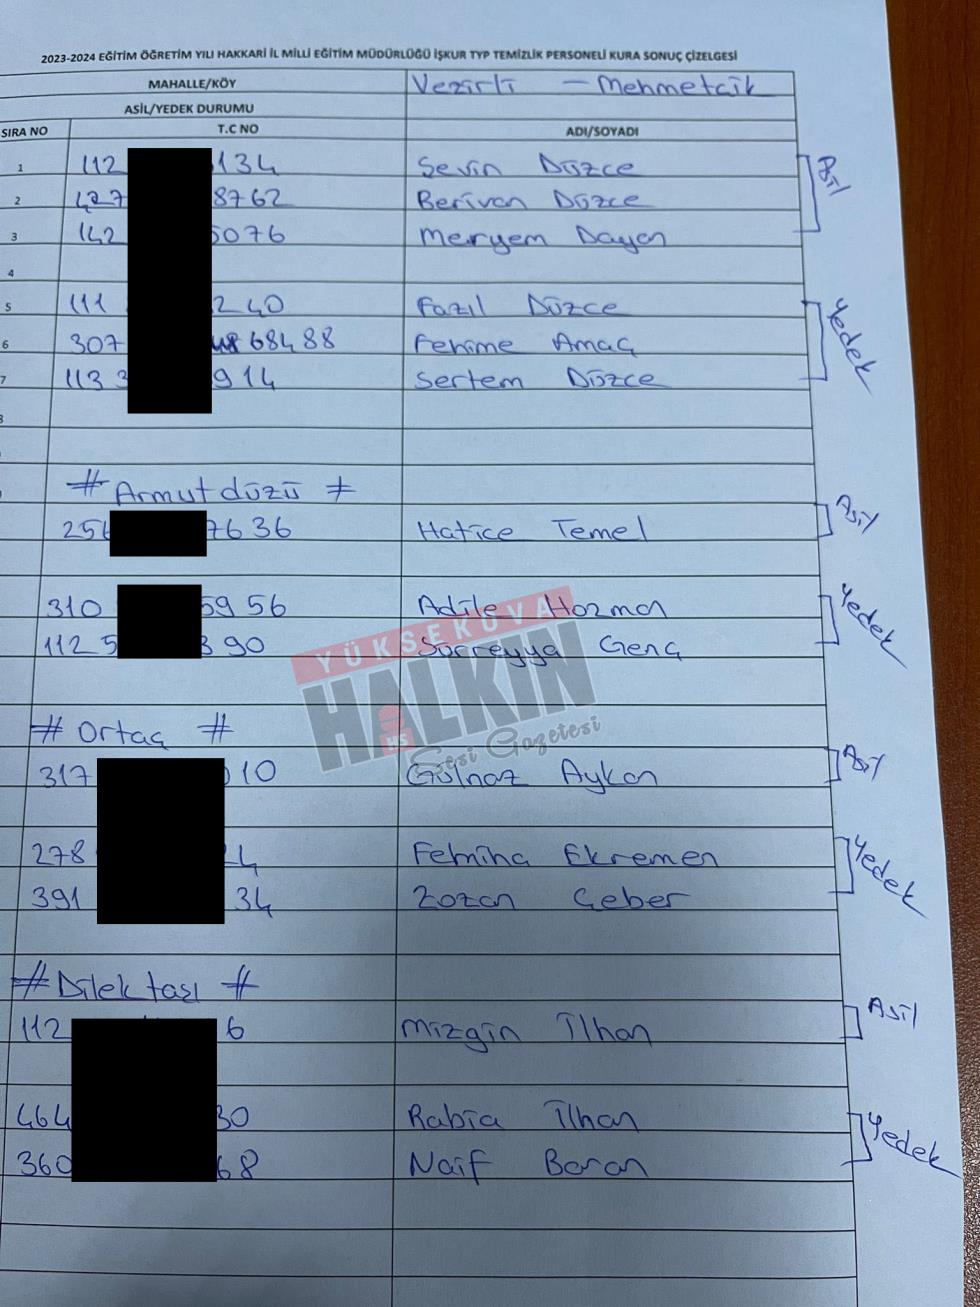 2023-2024 EĞİTİM ÖĞRETİM YILI HAKKARİ İL MİLLİ EĞİTİM MÜDÜRLÜĞÜ İŞKUR TYP TEMİZLİK PERSONELİ KURA SONUÇ ÇİZELGESİ
MAHALLE/KÖY Vezirli - Mehmetcik
ASİL/YEDEK DURUMU
SIRA NO T.C NO ADI/SOYADI
1 112 134 Sevin Düzce Asil
2 427 8762 Berivan Düzce
3 142 5076 Meryem Dayan
4
5 111 240 Fazıl Düzce Yedek
6 307 68488 Fehime Amaç
7 113 3 914 Sertem Düzce
# Armutdüzü #
256 7636 Hatice Temel Asil
310 5956 Adile Hozman Yedek
112 5 390 Sürreyya Genç
YÜKSEKOVA
HALKIN
Sesi Gazetesi
# Ortaç #
317 010 Gülnaz Aykan Asil
278 4 Femiha Ekremen Yedek
391 34 Zozan Geber
# Dilektaşı #
112 6 Mizgin İlhan Asil
464 30 Rabia İlhan Yedek
360 68 Naif Baran